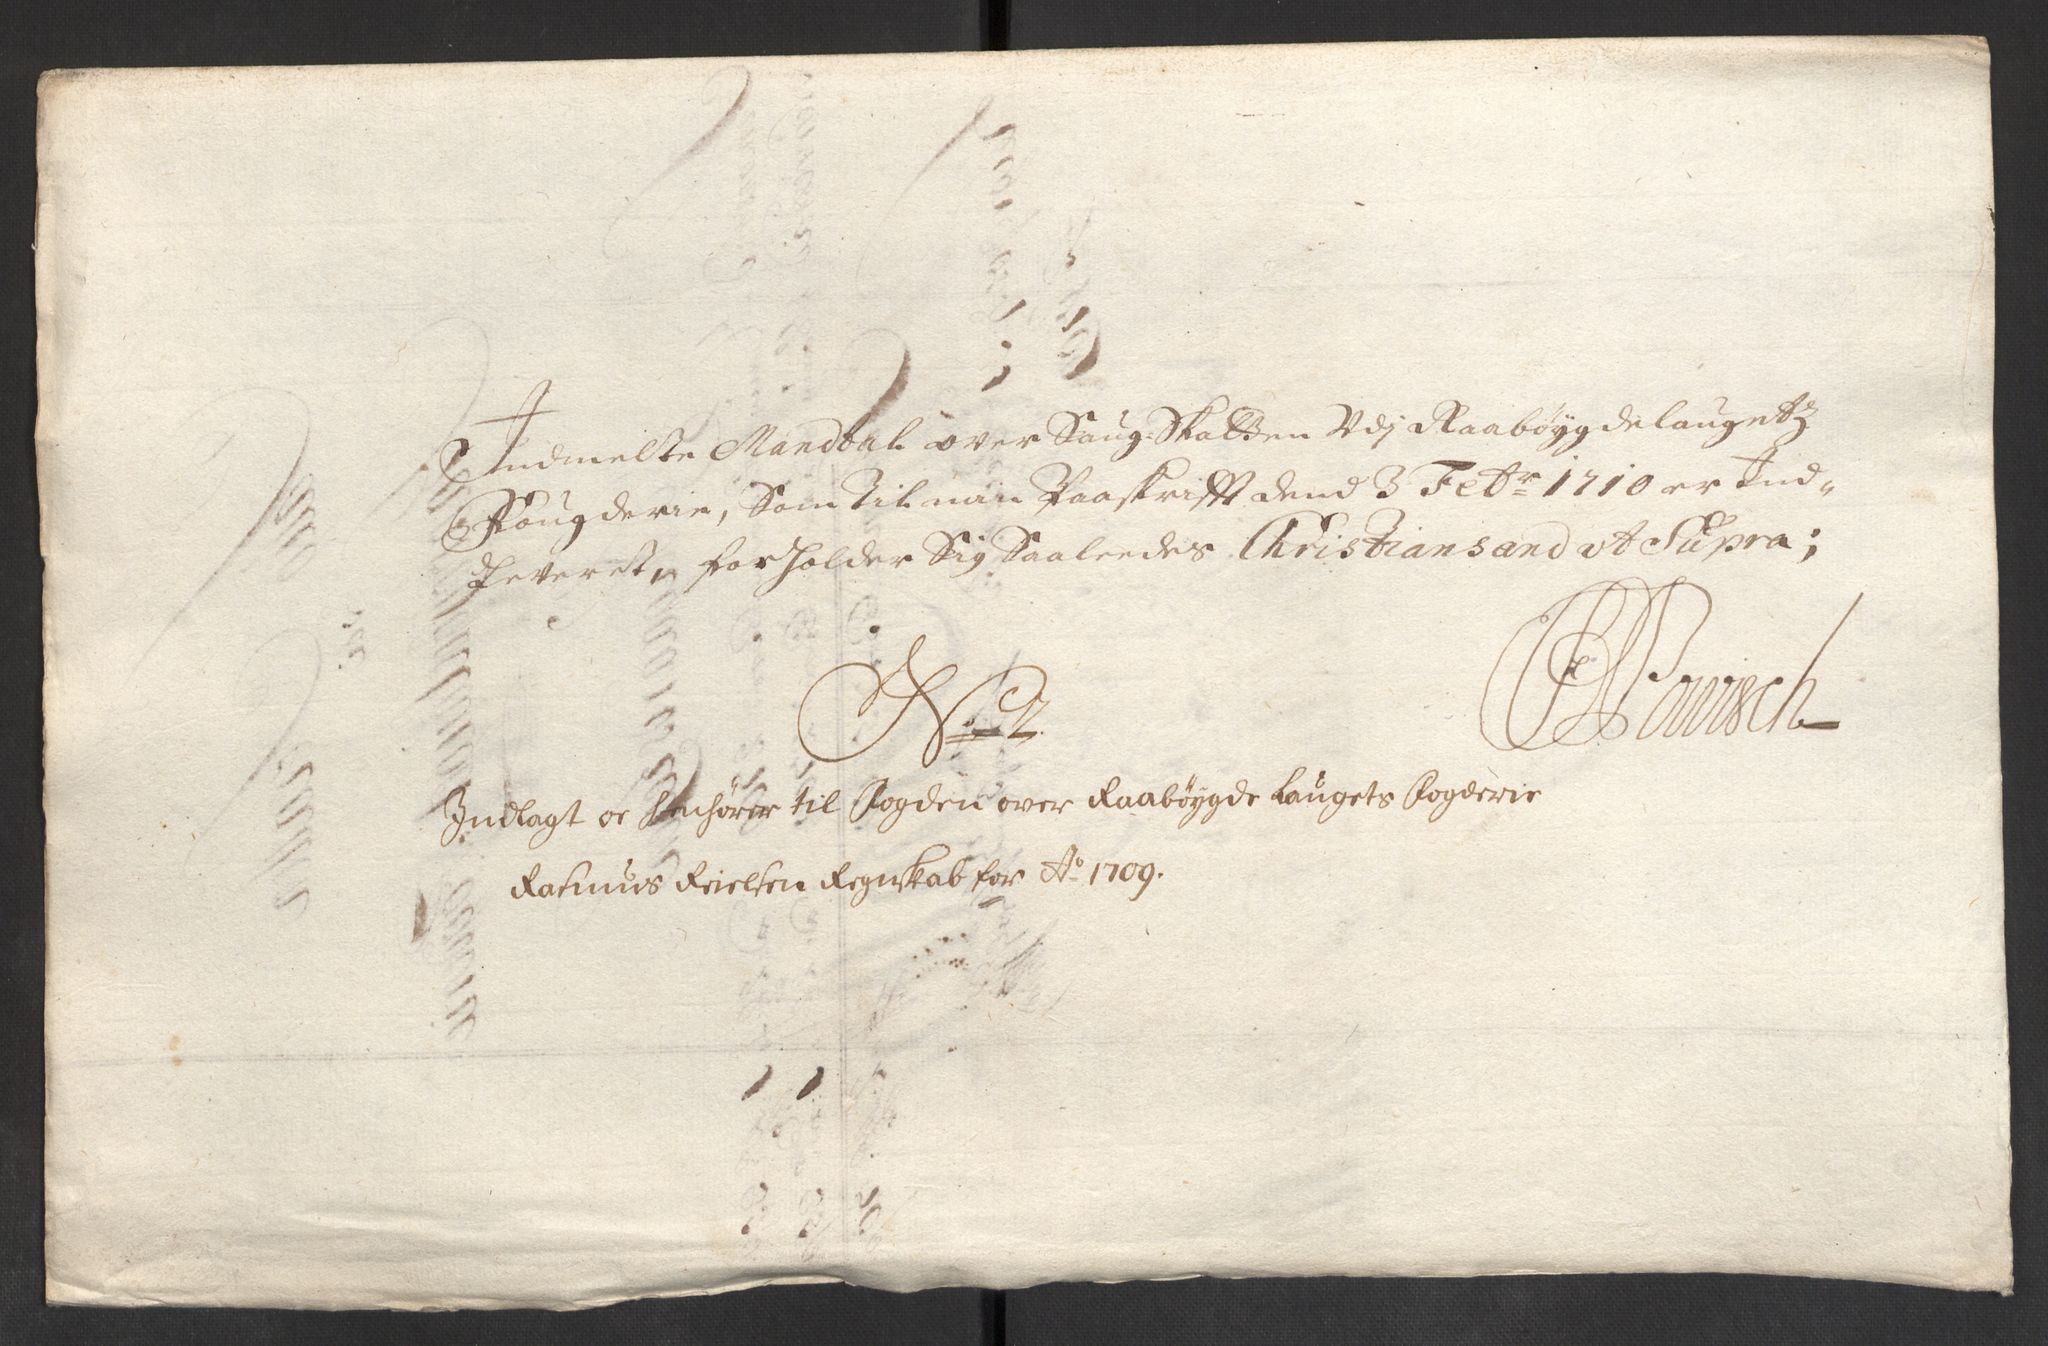 Indmelte Mandtal over Saug-Skatten Udj Raabøÿgdelaugetz
Fougderie, Som til min Paaskrifft dend 3 Febr: 1710 er Ind-
leveret, forholder Sig Saaleedes Christiansand ut Supra;
No 2.
Indlagt oc henhører til Fogden over Raabøygde Laugets Fogderie
Rasmus Reielsen Regnskab for Ao 1709.